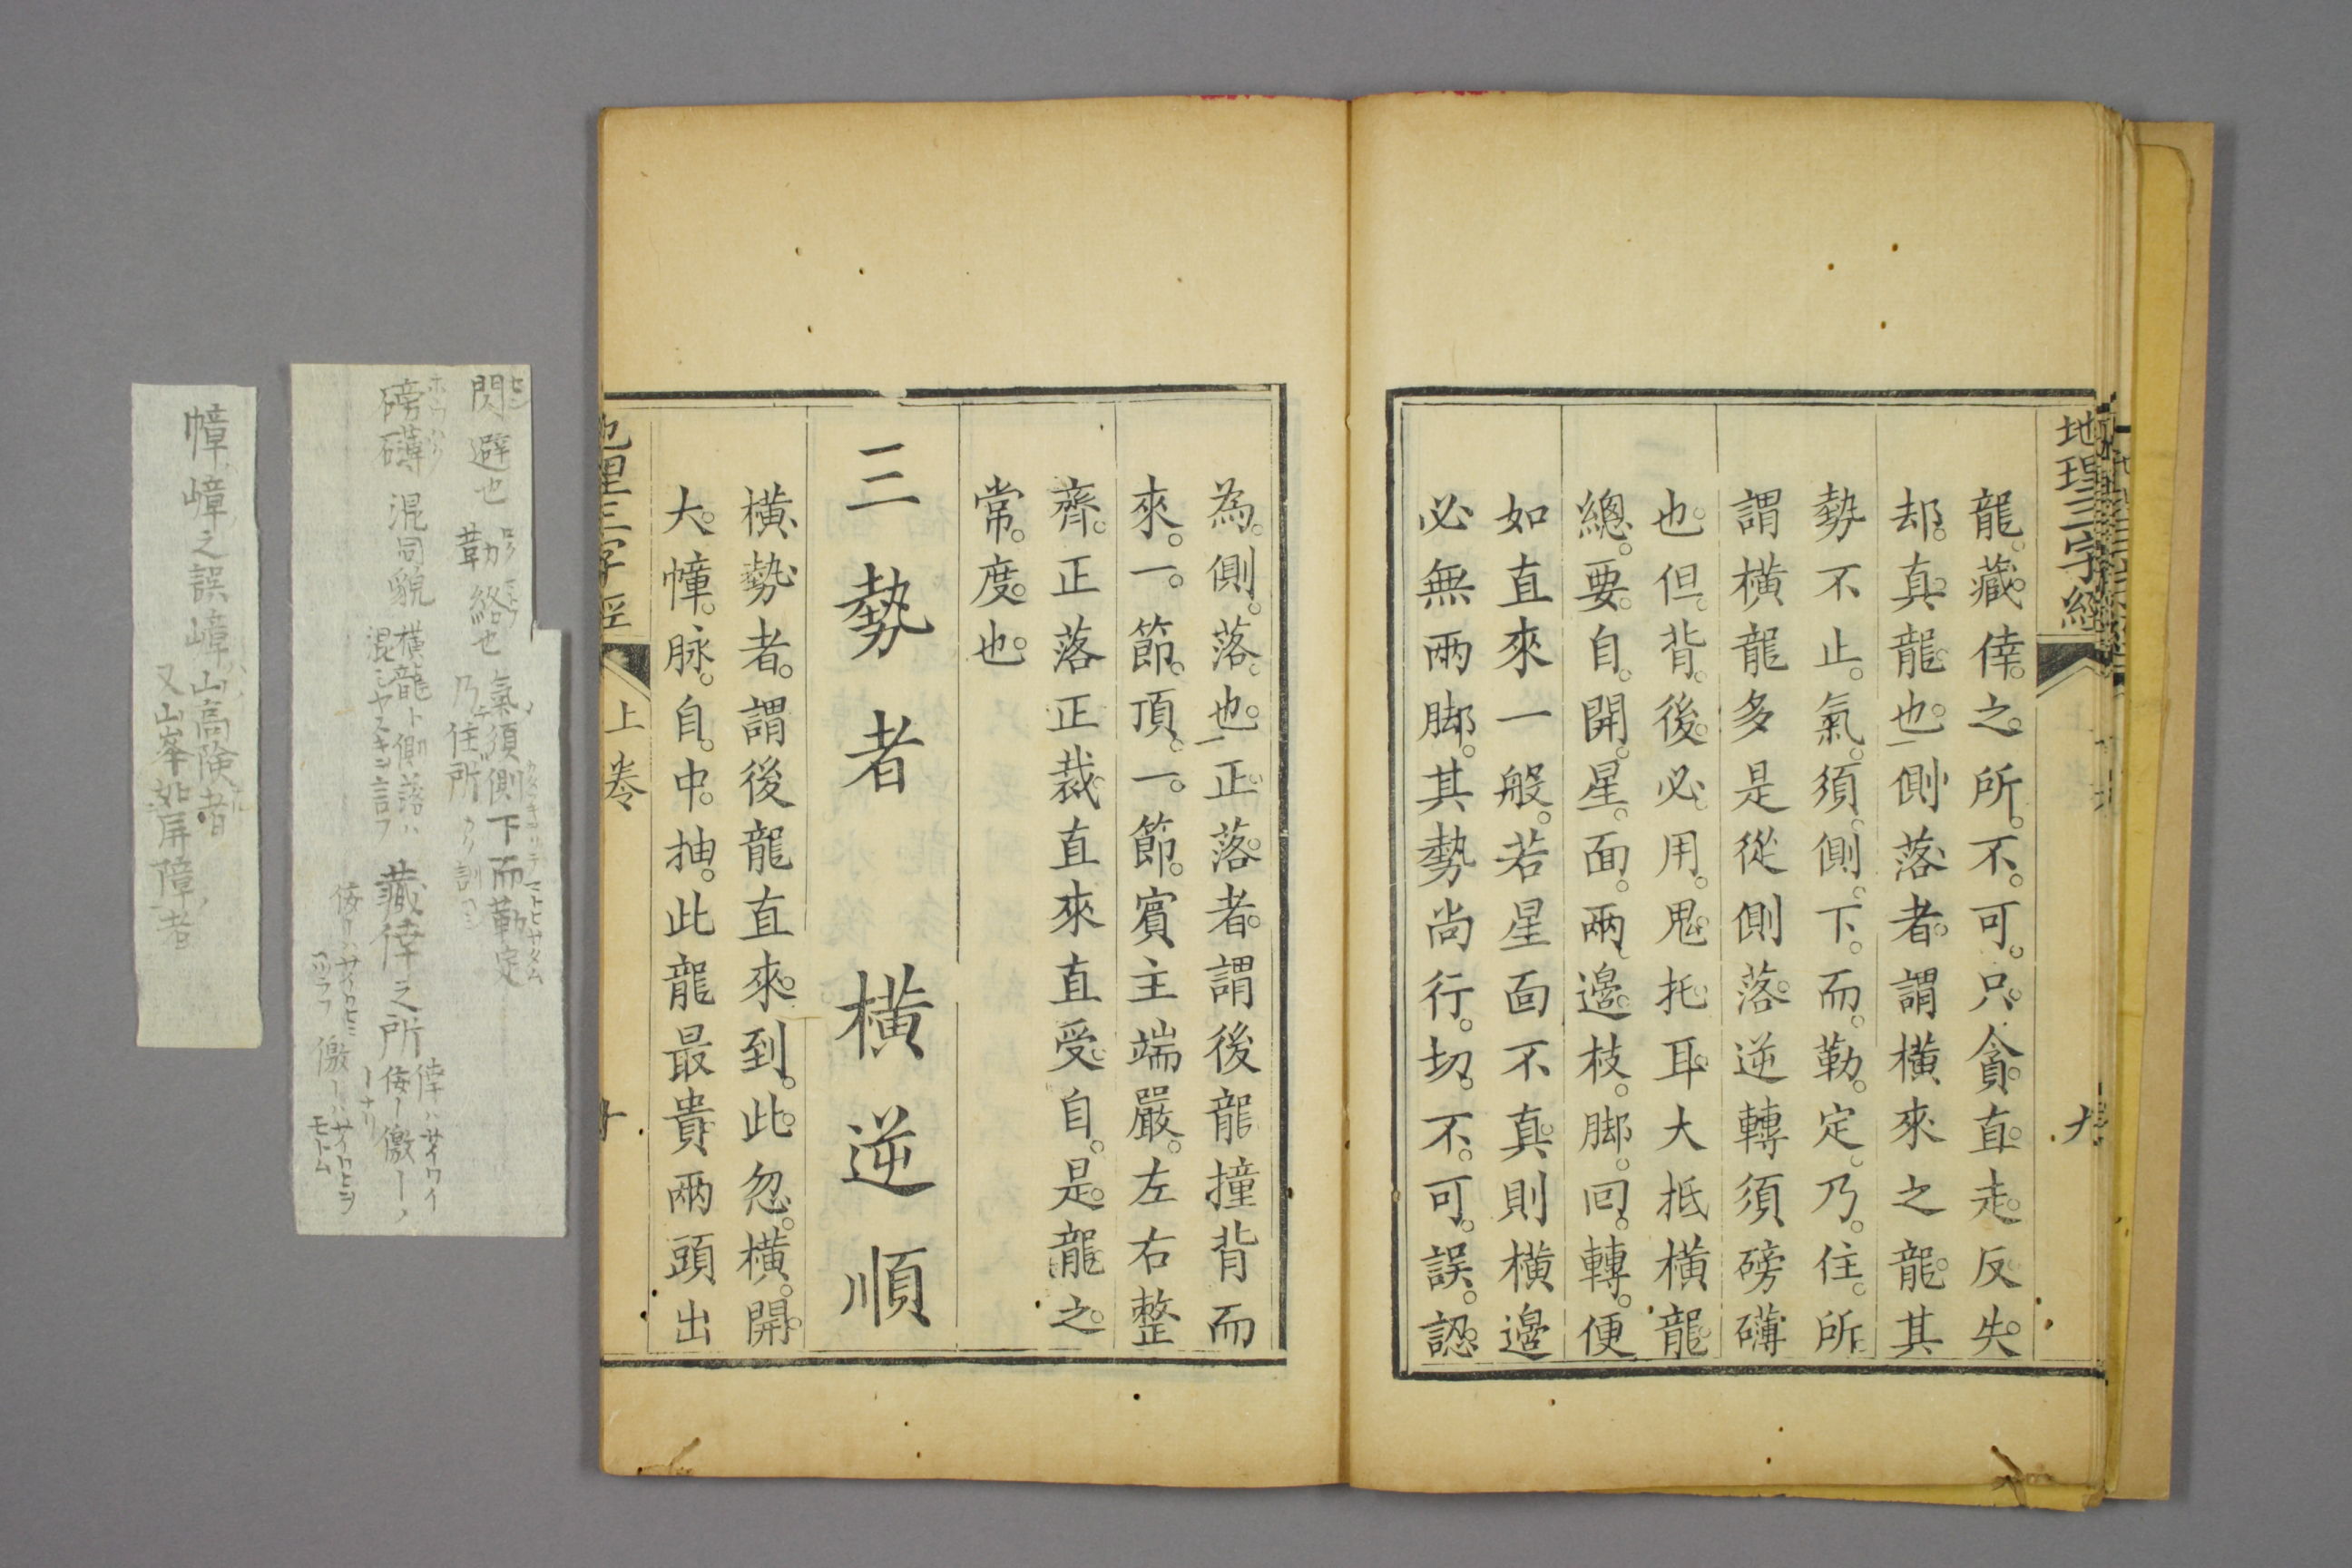 地理三字經
九
龍藏倖之所不可只貪直走反失
却真龍也側落者謂橫來之龍其
勢不止氣須側下而勒定乃住所
謂橫龍多是從側落逆轉須磅礴
也但背後必用鬼托耳大抵橫龍
總要自開星面兩邊枝脚回轉便
如直來一般若星面不真則橫邊
必無兩脚其勢尚行切不可誤認
為側落也正落者謂後龍撞背而
來一節頂一節賓主端嚴左右整
齊正落正裁直來直受自是龍之
常度也
三勢者橫逆順
橫勢者謂後龍直來到此忽橫開
大幛脉自中抽此龍最貴兩頭出
地理三字經 上卷 十
閃避也 勒絡也 氣須側下而勒定
乃住所
磅礴 混同貌 橫龍ト側落ハ
混シヤスキヲ言フ
藏倖之所 倖ハサイワイ
モトム
幛嶂之誤嶂山高険者
又山峯如屏障者